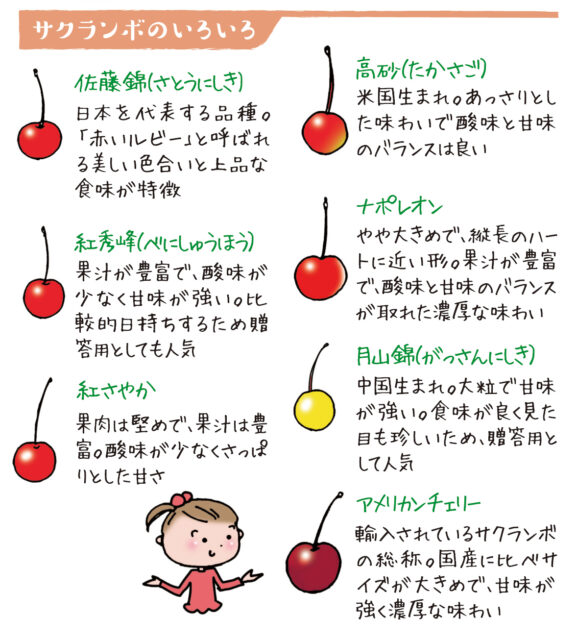 サクランボのいろいろ
佐藤錦(さとうにしき)
日本を代表する品種。
「赤いルビー」と呼ばれ
る美しい色合いと上品な
食味が特徴
紅秀峰(べにしゅうほう)
果汁が豊富で、酸味が
少なく甘味が強い。比
較的日持ちするため贈
答用としても人気
紅さやか
果肉は堅めで、果汁は豊
富。酸味が少なくさっぱ
りとした甘さ
高砂(たかさご)
米国生まれ。あっさりとし
た味わいで酸味と甘味
のバランスは良い
ナポレオン
やや大きめで、縦長のハー
トに近い形。果汁が豊富
で、酸味と甘味のバランス
が取れた濃厚な味わい
月山錦(がっさんにしき)
中国生まれ。大粒で甘味
が強い。食味が良く見た
目も珍しいため、贈答用と
して人気
アメリカンチェリー
輸入されているサクランボ
の総称。国産に比べサ
イズが大きめで、甘味が
強く濃厚な味わい